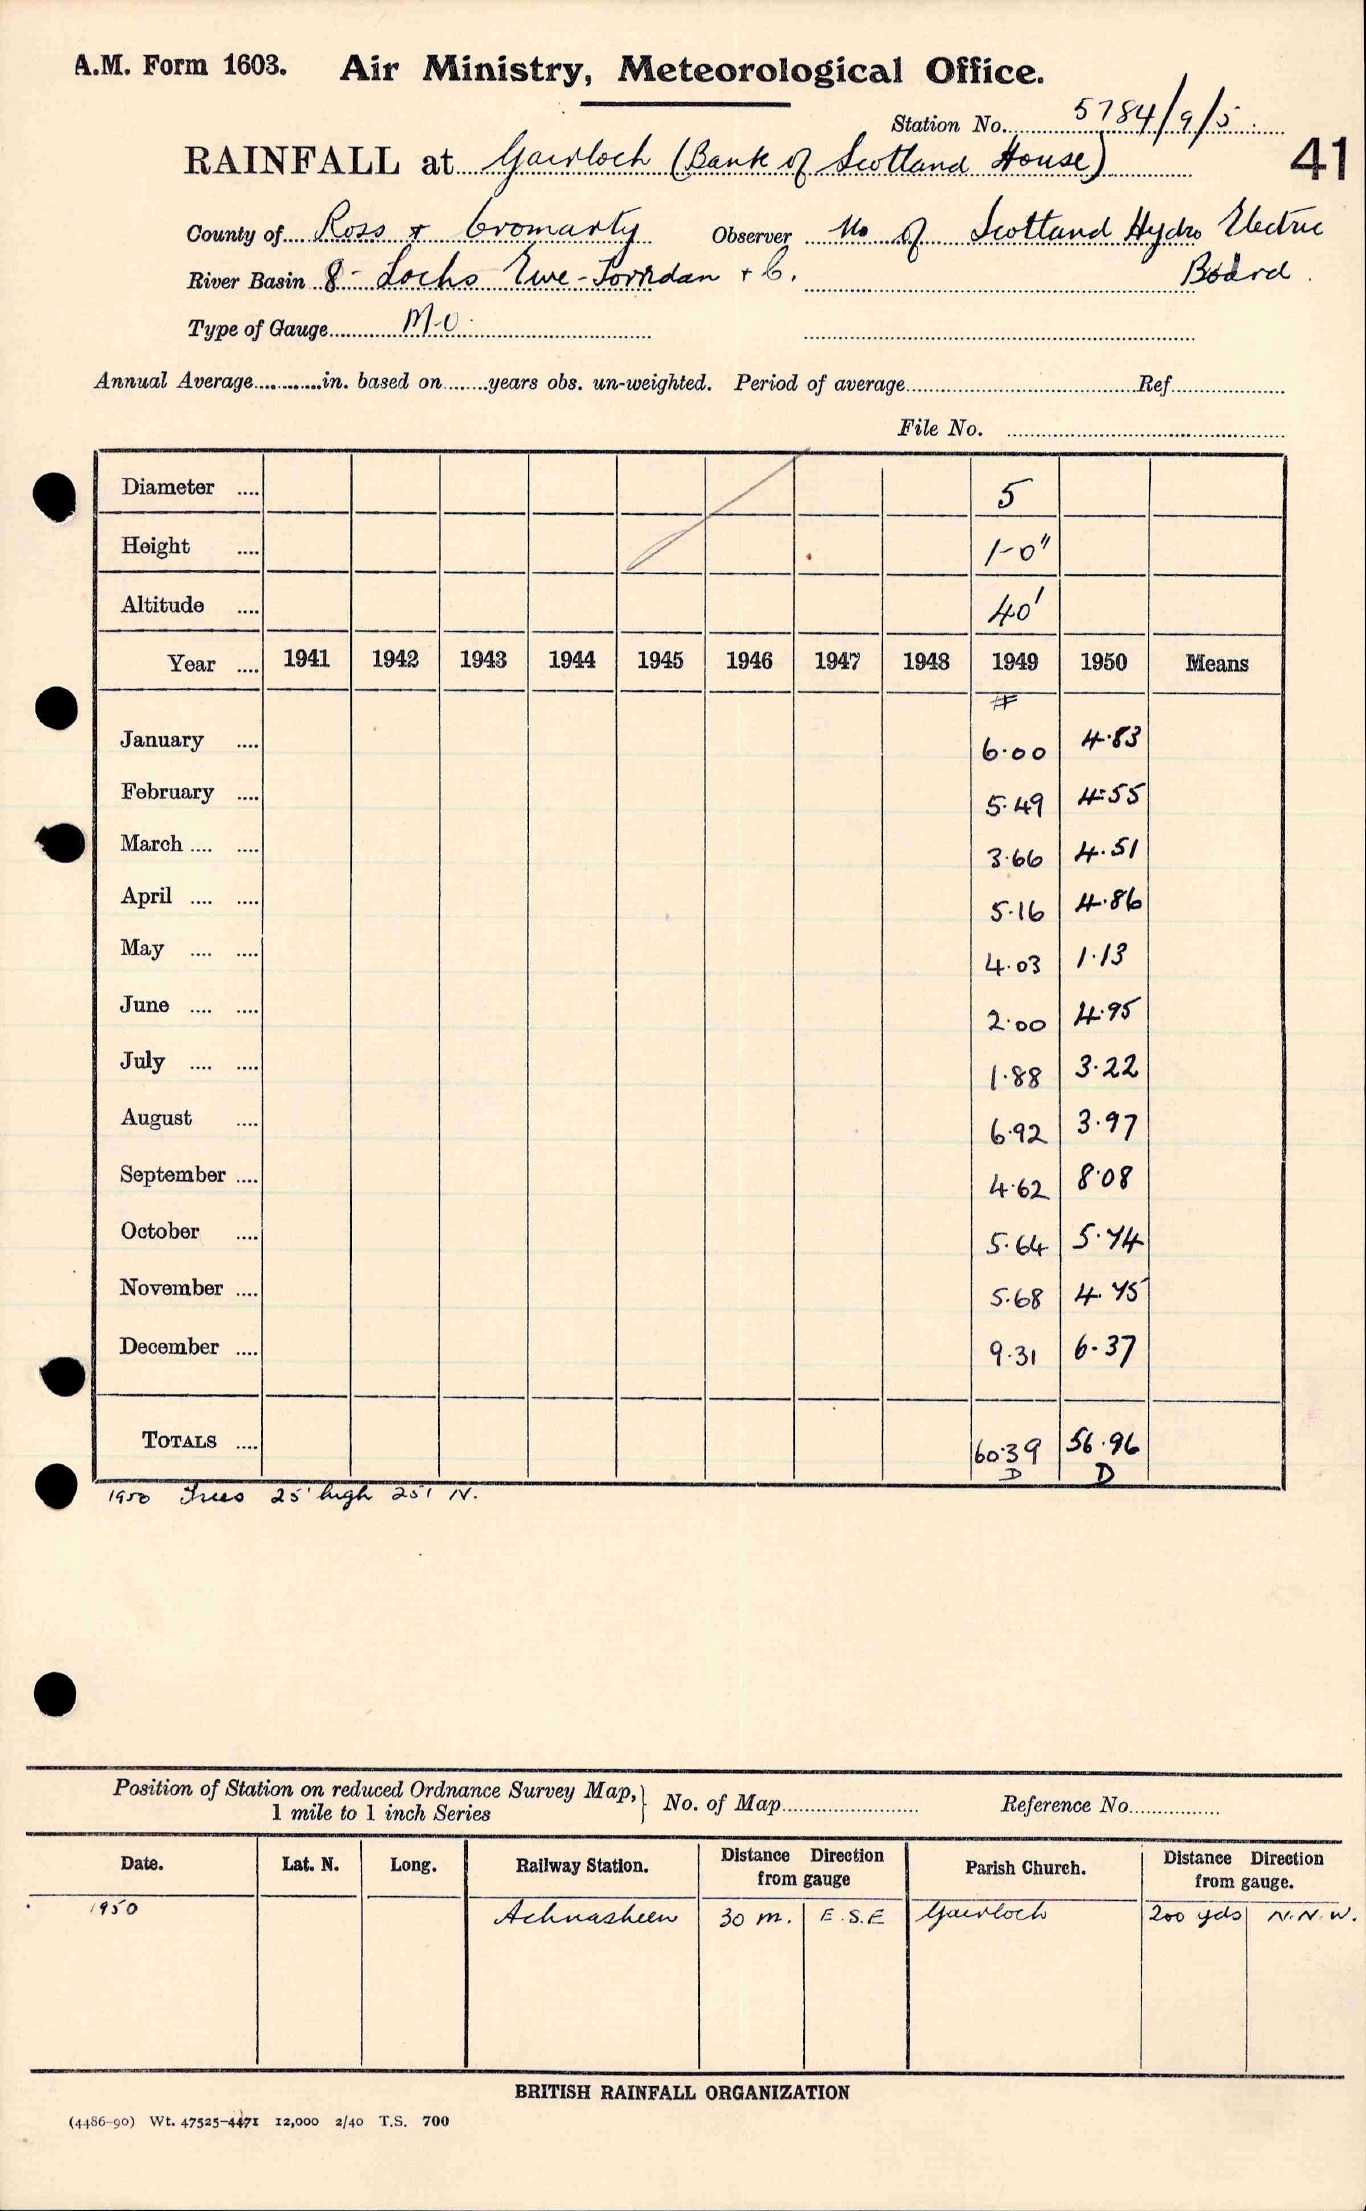 A.M. Form 1603. Air Ministry, Meteorological Office.
Station No. 5784/9/5.
RAINFALL at Gairloch (Bank of Scotland House) 41
County of Ross & Cromarty Observer No of Scotland Hydro Electric
River Basin 8- Lochs Ewe-Torridan + C. Board.
Type of Gauge M.O.
Annual Average............in. based on........years obs. un-weighted. Period of average............Ref............
File No. ............
Diameter .... 5
Height .... 1-0"
Altitude .... 40'
Year .... 1941 1942 1943 1944 1945 1946 1947 1948 1949 1950 Means
#
January .... 6.00 4.83
February .... 5.49 4.55
March .... .... 3.66 4.51
April .... .... 5.16 4.86
May .... .... 4.03 1.13
June .... .... 2.00 4.95
July .... .... 1.88 3.22
August .... 6.92 3.97
September .... 4.62 8.08
October .... 5.64 5.74
November .... 5.68 4.75
December .... 9.31 6.37
TOTALS .... 60.39 56.96
D D
1950 Trees 25' high 25' N.
Position of Station on reduced Ordnance Survey Map, } No. of Map............ Reference No............
1 mile to 1 inch Series
Date. Lat. N. Long. Railway Station. Distance Direction from gauge Parish Church. Distance Direction from gauge.
1950 Achnasheen 30 m. E.S.E Gairloch 200 yds N.N.W.
BRITISH RAINFALL ORGANIZATION
(4486-90) Wt. 47525-4471 12,000 2/40 T.S. 700